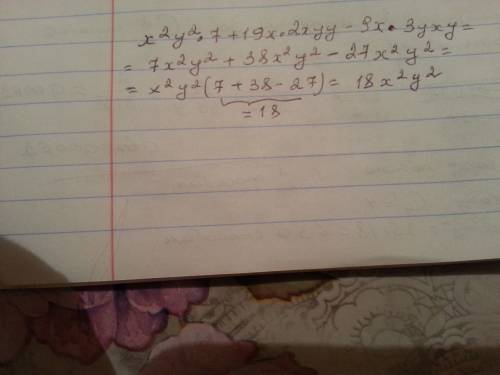 x²y²·7 + 19x·2xyy - 9x·3yxy =
= 7x²y² + 38x²y² - 27x²y² =
= x²y²(7 + 38 - 27) = 18x²y²
= 18